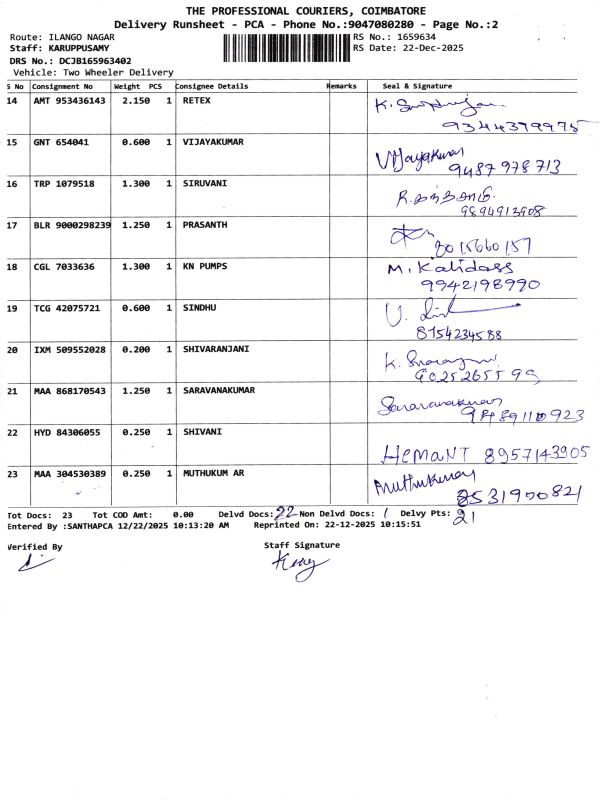 THE PROFESSIONAL COURIERS, COIMBATORE
Delivery Runsheet - PCA - Phone No.:9047080280 - Page No.:2
Route: ILANGO NAGAR RS No.: 1659634
Staff: KARUPPUSAMY RS Date: 22-Dec-2025
DRS No.: DCJB165963402
Vehicle: Two Wheeler Delivery
S No Consignment No Weight PCS Consignee Details Remarks Seal & Signature
14 AMT 953436143 2.150 1 RETEX
9344379975
15 GNT 654041 0.600 1 VIJAYAKUMAR Vijayakumar
9487978713
16 TRP 1079518 1.300 1 SIRUVANI
9894913908
17 BLR 9000298239 1.250 1 PRASANTH
8015660157
18 CGL 7033636 1.300 1 KN PUMPS M. Kalidass
9942198990
19 TCG 42075721 0.600 1 SINDHU
8754234588
20 IXM 509552028 0.200 1 SHIVARANJANI
21 MAA 868170543 1.250 1 SARAVANAKUMAR Saravanakumar
22 HYD 84306055 0.250 1 SHIVANI
HEMANT 8957143905
23 MAA 304530389 0.250 1 MUTHUKUM AR Muthukumar
8531900821
Tot Docs: 23 Tot COD Amt: 0.00 Delvd Docs: 22 Non Delvd Docs: 1 Delvy Pts: 21
Entered By :SANTHAPCA 12/22/2025 10:13:20 AM Reprinted On: 22-12-2025 10:15:51
Verified By Staff Signature